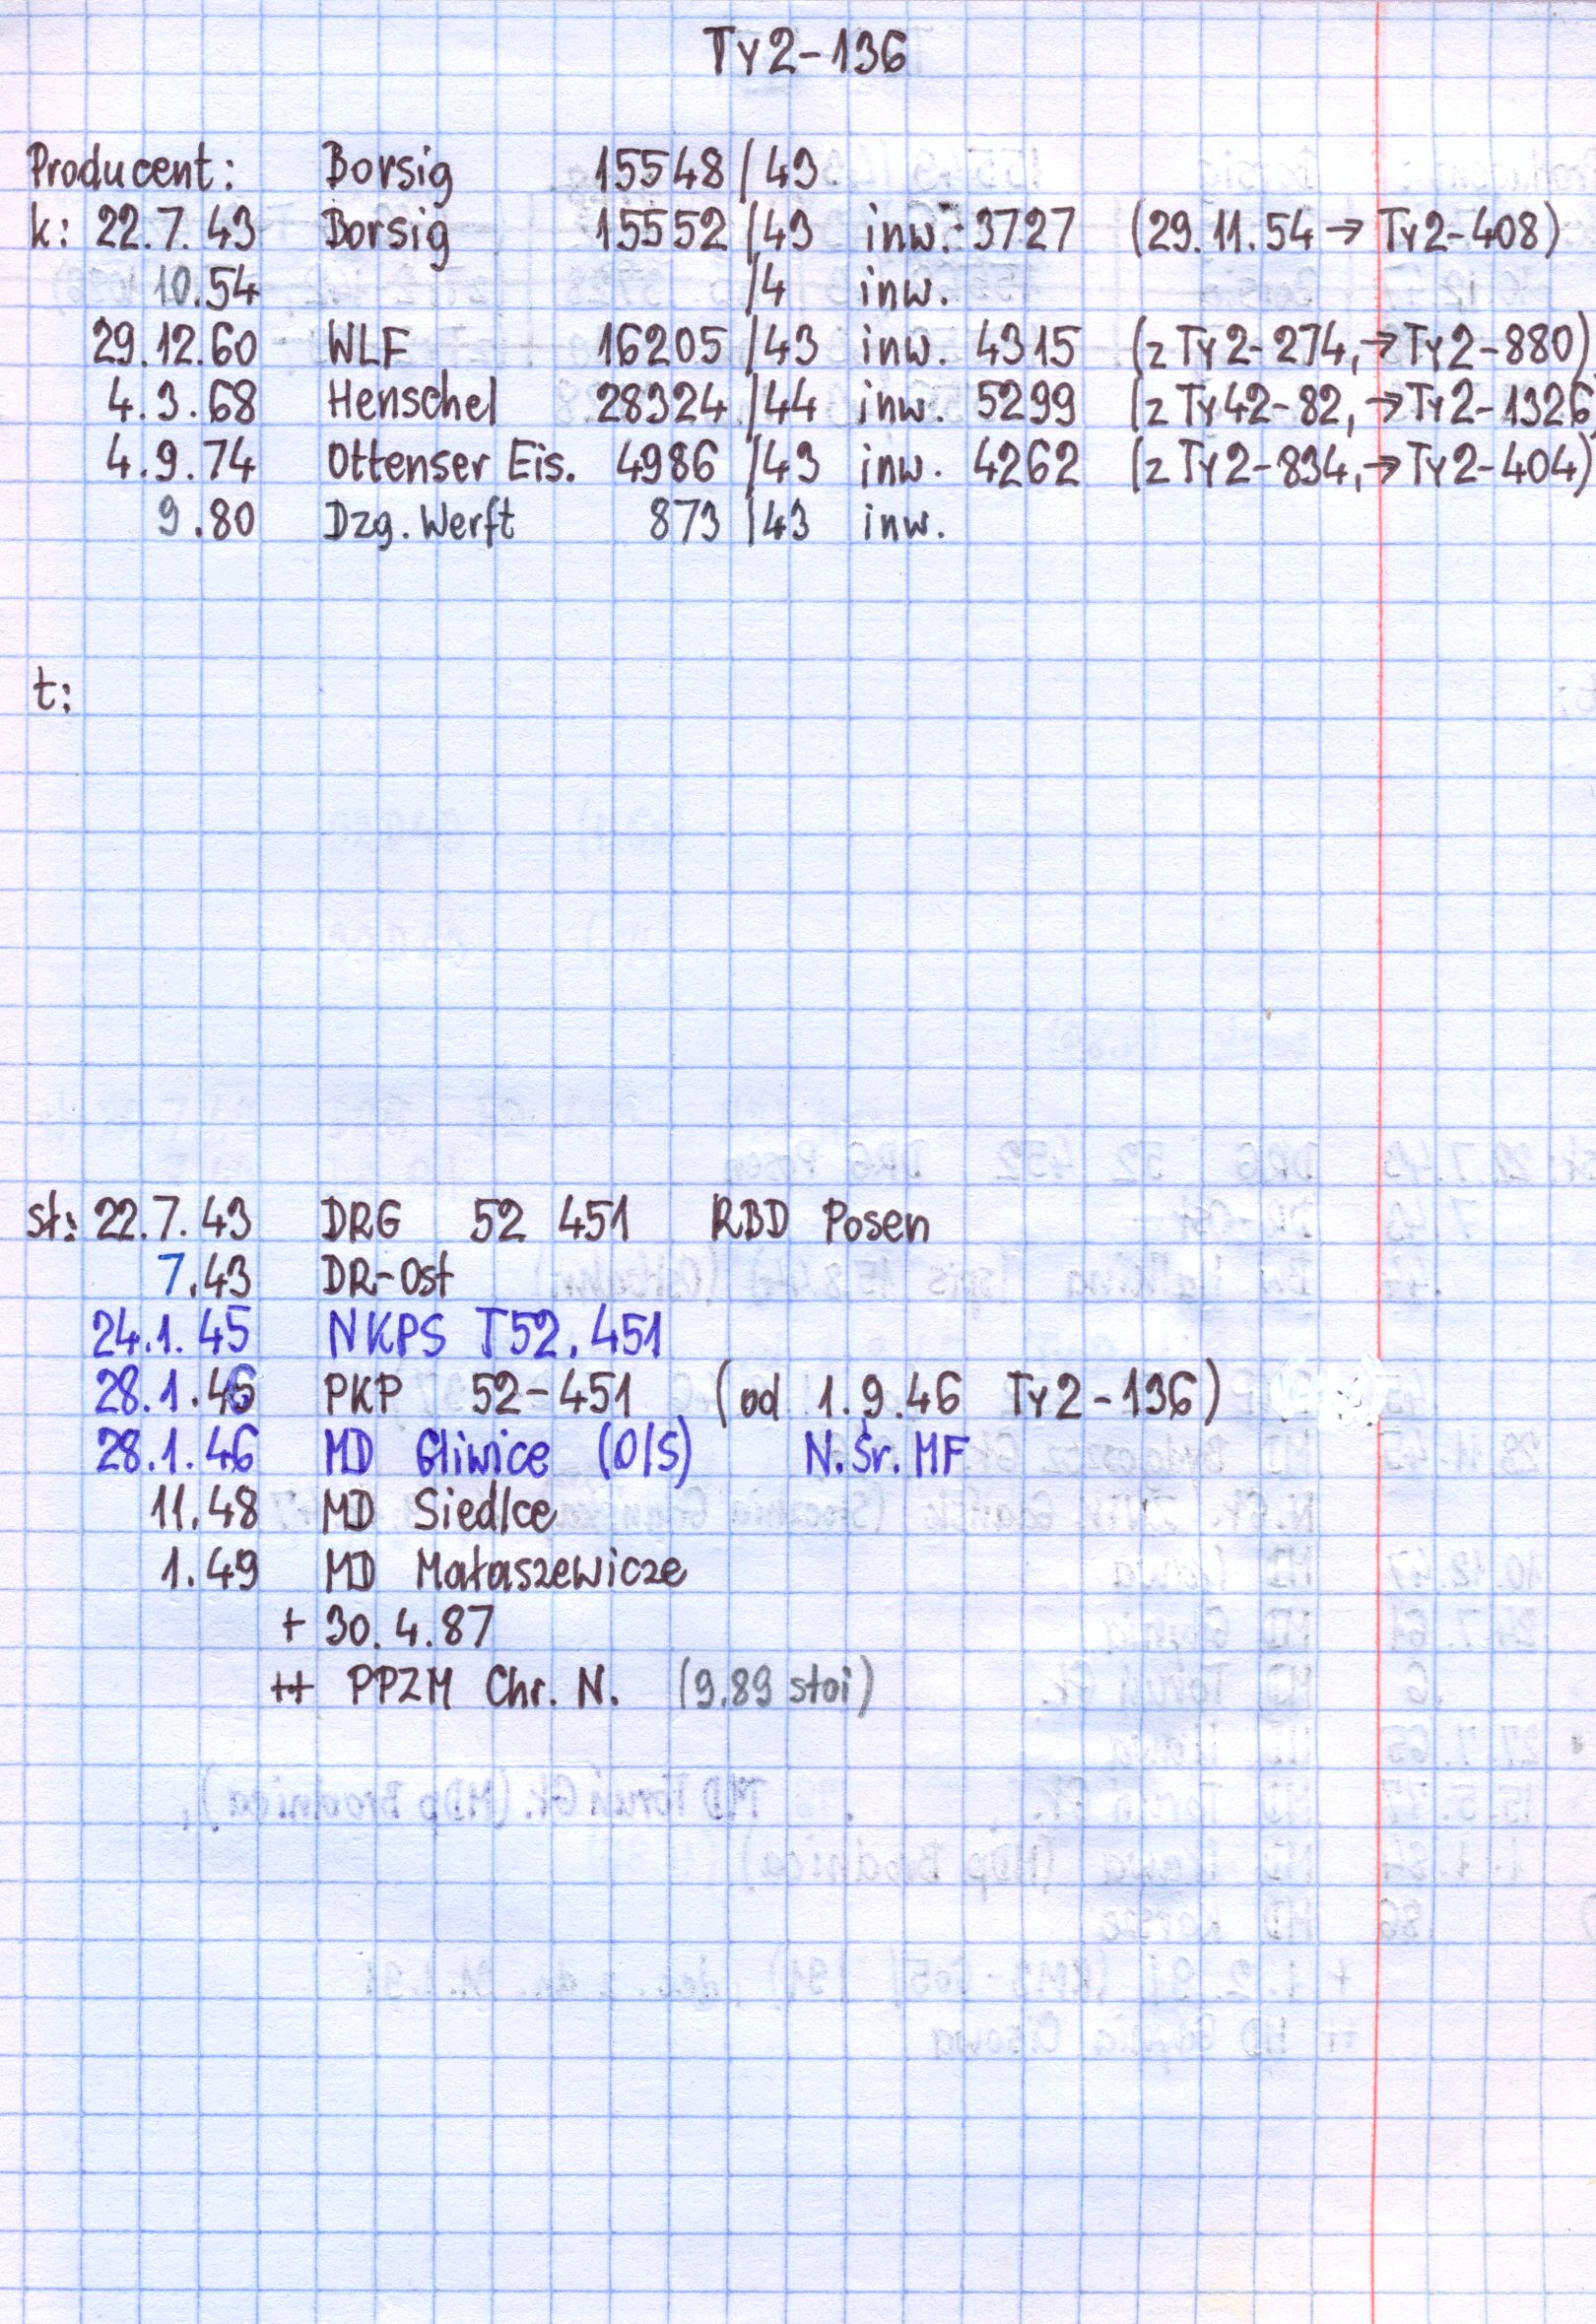 Ty2-136
Producent: Borsig 15548/43
k: 22.7.43 Borsig 15552/43 inw. 3727 (29.11.54 → Ty2-408)
10.54 /4 inw.
29.12.60 WLF 16205/43 inw. 4315 (z Ty2-274, → Ty2-880)
4.3.68 Henschel 28324/44 inw. 5299 (z Ty42-82, → Ty2-1326
4.9.74 Ottenser Eis. 4986/43 inw. 4262 (z Ty2-834, → Ty2-404)
9.80 Dzg. Werft 873/43 inw.
t:
st: 22.7.43 DRG 52 451 RBD Posen
7.43 DR-Ost
24.1.45 NKPS T52.451
28.1.46 PKP 52-451 (od 1.9.46 Ty2-136)
28.1.46 MD Gliwice (O/S) N.Śr.MF
11.48 MD Siedlce
1.49 MD Małaszewicze
+ 30.4.87
++ PPZM Chr. N. (9.89 stoi)